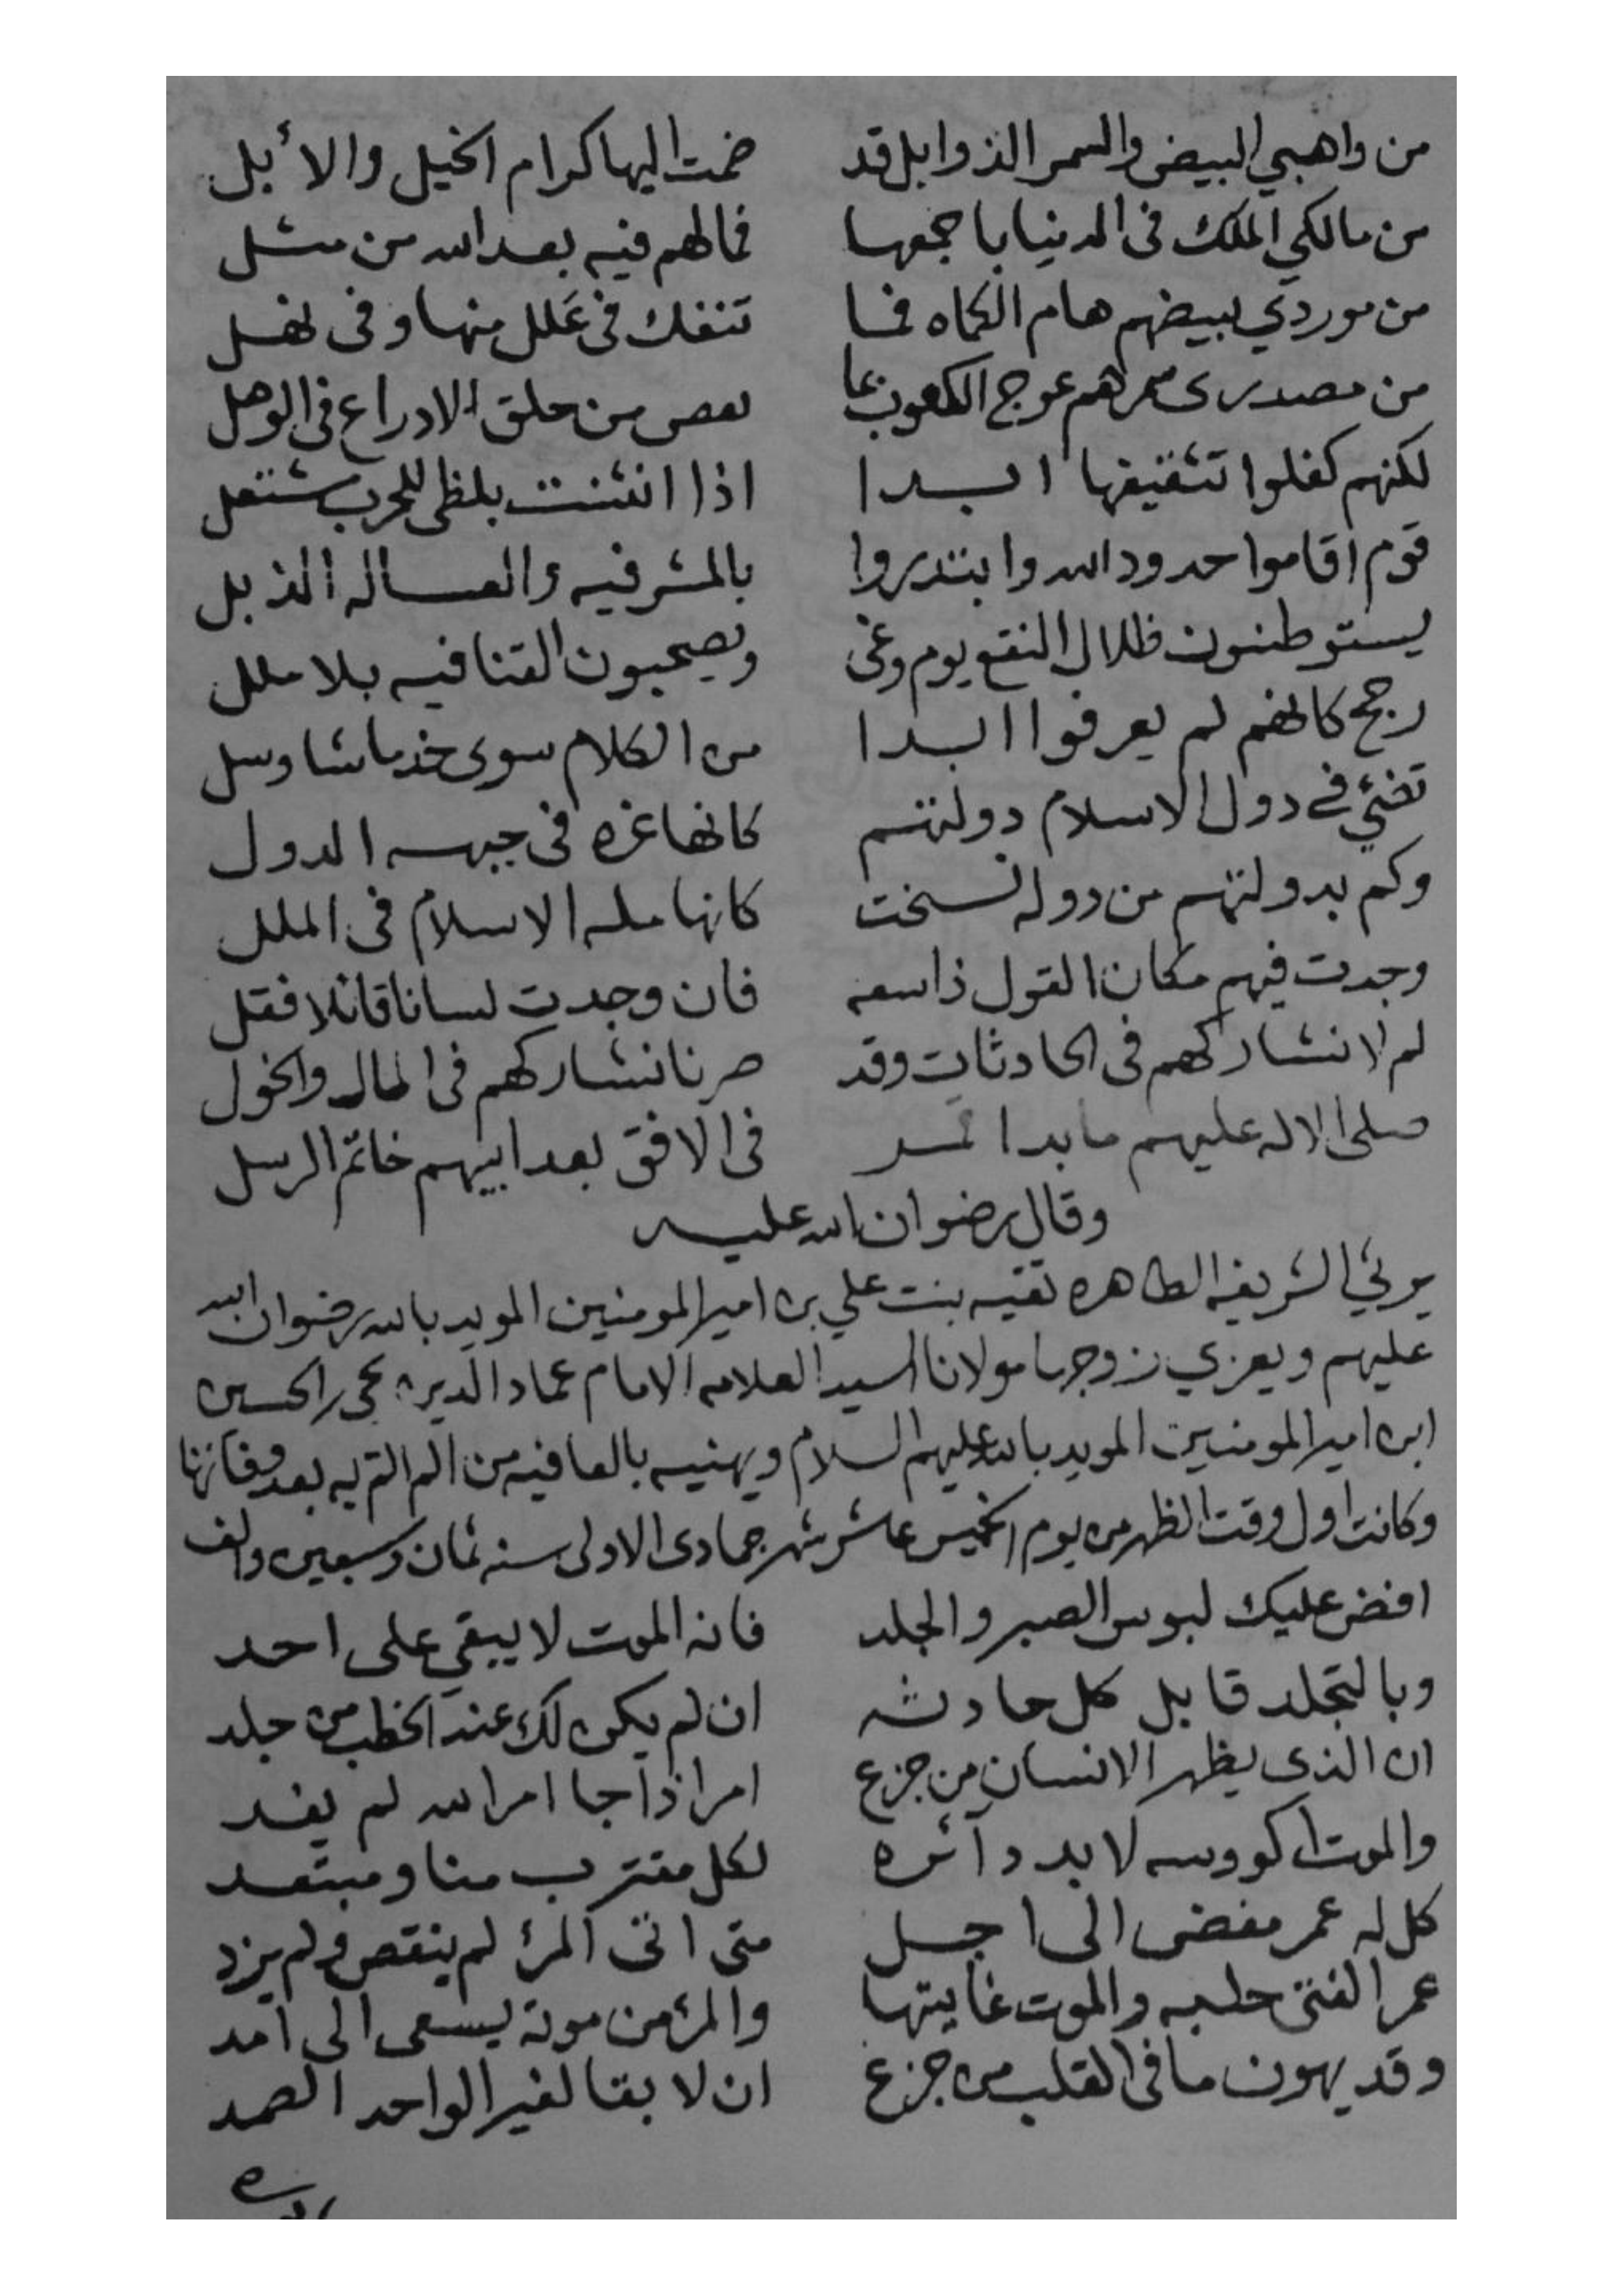 من واهبي البيض والسمر الذوابل قد ضمت اليها كرام الخيل والأبل
من مالكي الملك فى الدنيا باجمعها فمالهم فيه بعد الله من مثل
من موردي ببيضهم هام الكماه فما تنفك فى عَلل منها وفى نهل
من مصدرى سمرهم عوج الكعوب بما من حلق الادراع فى الوهل
لكنهم كفلوا تثقيفها ابدا اذا انثنت بلظى للحرب مشتعل
قوم اقاموا حدود الله وابتدروا بالمشرفيه والعساله الذبل
يستوطنون ظلال النقع يوم وغى ويصحبون القنا فيه بلا ملل
رجح كانهم لم يعرفوا ابدا من الكلام سوى خذ ماتشا وسل
تضئي في دول الاسلام دولتهم كانها غره فى جبهه الدول
وكم بدولتهم من دوله نسخت كانها مله الاسلام فى الملل
وجدت فيهم مكان القول ذا سعه فان وجدت لسانا قائلا فقل
لم لا نشاركهم فى الحادثات وقد صرنا نشاركهم فى المال والخول
صلى الاله عليهم ما بدا قمر فى الافق بعد ابيهم خاتم الرسل
وقال رضوان الله عليه
يرثي الشريفه الطاهره تقيه بنت علي بن امير المومنين المويد بالله رضوان الله
عليهم ويعزي زوجها مولانا السيد العلامه الامام عماد الدين يحى بن الحسين
ابن امير المومنين المويد بالله عليهم السلام ويهنيه بالعافيه من الم الم به بعد وفاتها
وكانت اول وقت الظهر من يوم الخميس عاشر شهر جمادى الاولى سنه ثمان وسبعين والف
افض عليك لبوس الصبر والجلد فانه الموت لا يبقي على احد
وبالتجلد قابل كل حادثه ان لم يكن لك عند الخطب من جلد
ان الذى يظهر الانسان من جزع امر اذا جا امر الله لم يفد
والموت اكووسه لابد دآئره لكل مقترب منا ومبتعد
كل له عمر مفضى الى اجل متى اتى المرء لم ينقص ولم يزد
عمر الفتى حلبه والموت غايتها والمرء من موته يسعى الى امد
وقد يهون ما فى القلب من جزع ان لا بقا لغير الواحد الصمد